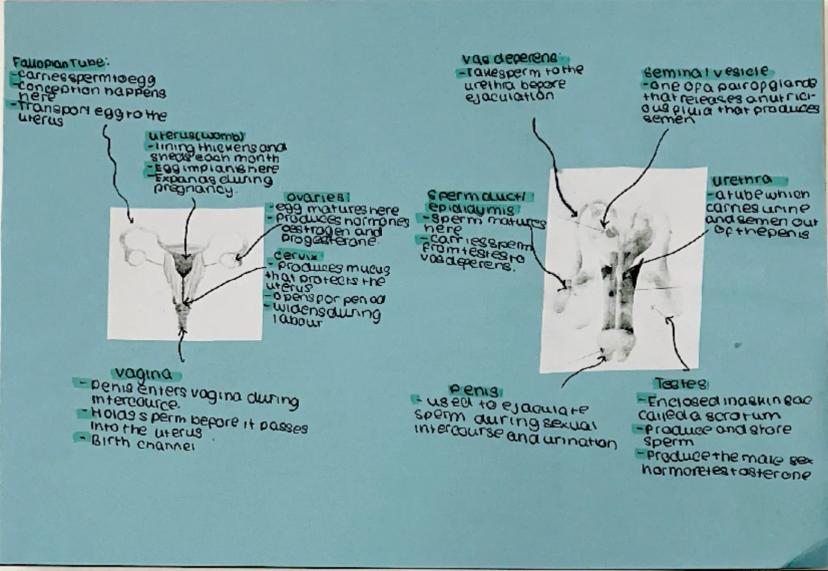 Fallopian Tube:
-carries sperm to egg
-conception happens
here
-Transport egg to the
uterus
uterus(womb)
-lining thickens and
sheds each month
-Egg implants here
-Expands during
pregnancy.
ovaries:
-egg matures here
-produces hormones
oestrogen and
progesterone.
cervix:
-produces mucus
that protects the
uterus
-opens for period
-widens during
labour
vagina
-Penis enters vagina during
intercourse.
-Holds sperm before it passes
into the uterus
-Birth channel
vas deferens:
-Takes sperm to the
urethra before
ejaculation
seminal vesicle
-one of a pair of glands
that releases a nutrici-
ous fluid that produces
semen
sperm duct/
epididymis
-sperm matures
here
-carries sperm
from testes to
vas deferens.
urethra
-a tube which
carries urine
and semen out
of the penis
Penis:
-used to ejaculate
sperm during sexual
intercourse and urination
Testes:
-Enclosed in a skin sac
called a scrotum
-Produce and store
sperm
-Produce the male sex
hormone testosterone